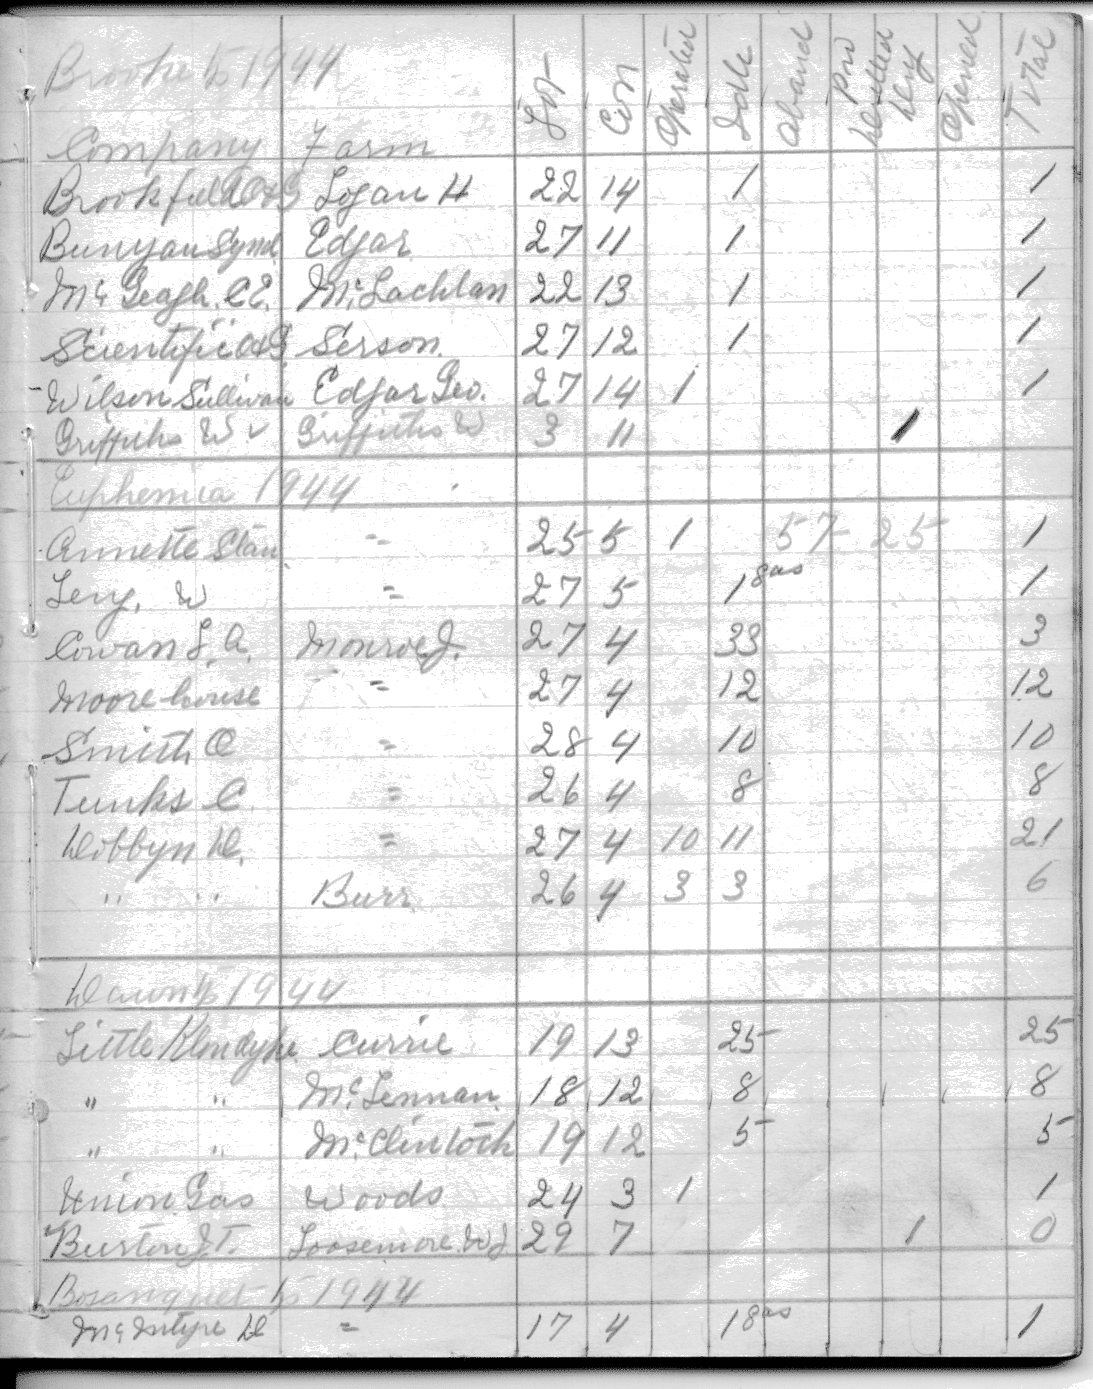 Brooke tp 1944
Company Farm Lot Con Operated Idle Aband Drilled Dry Opened Total
Brookfield O&G Logan H 22 14 1 1
Bunyan Synd Edgar 27 11 1 1
McGeagh. C E. McLachlan 22 13 1 1
Scientific O&G Serson. 27 12 1 1
Wilson Sullivan Edgar Geo. 27 14 1 1
Griffiths W Griffiths W 3 11 1
Euphemia 1944
Annette Stan " 25 5 1 57 25 1
W " 27 5 1 gas 1
Cowan L. A. Monroe J. 27 4 33 3
Moorehouse " 27 4 12 12
Smith O " 28 4 10 10
Tunks C. " 26 4 8 8
Dobbyn D. " 27 4 10 11 21
" " Burr 26 4 3 3 6
Dawn tp 1944
Little Klondyke Currie 19 13 25 25
" " McLennan 18 12 8 8
" " McClintock 19 12 5 5
Union Gas Woods 24 3 1 1
Burton J. T. Loosemore W J 29 7 1 0
Bosanquet tp 1944
McIntyre D " 17 4 1 gas 1